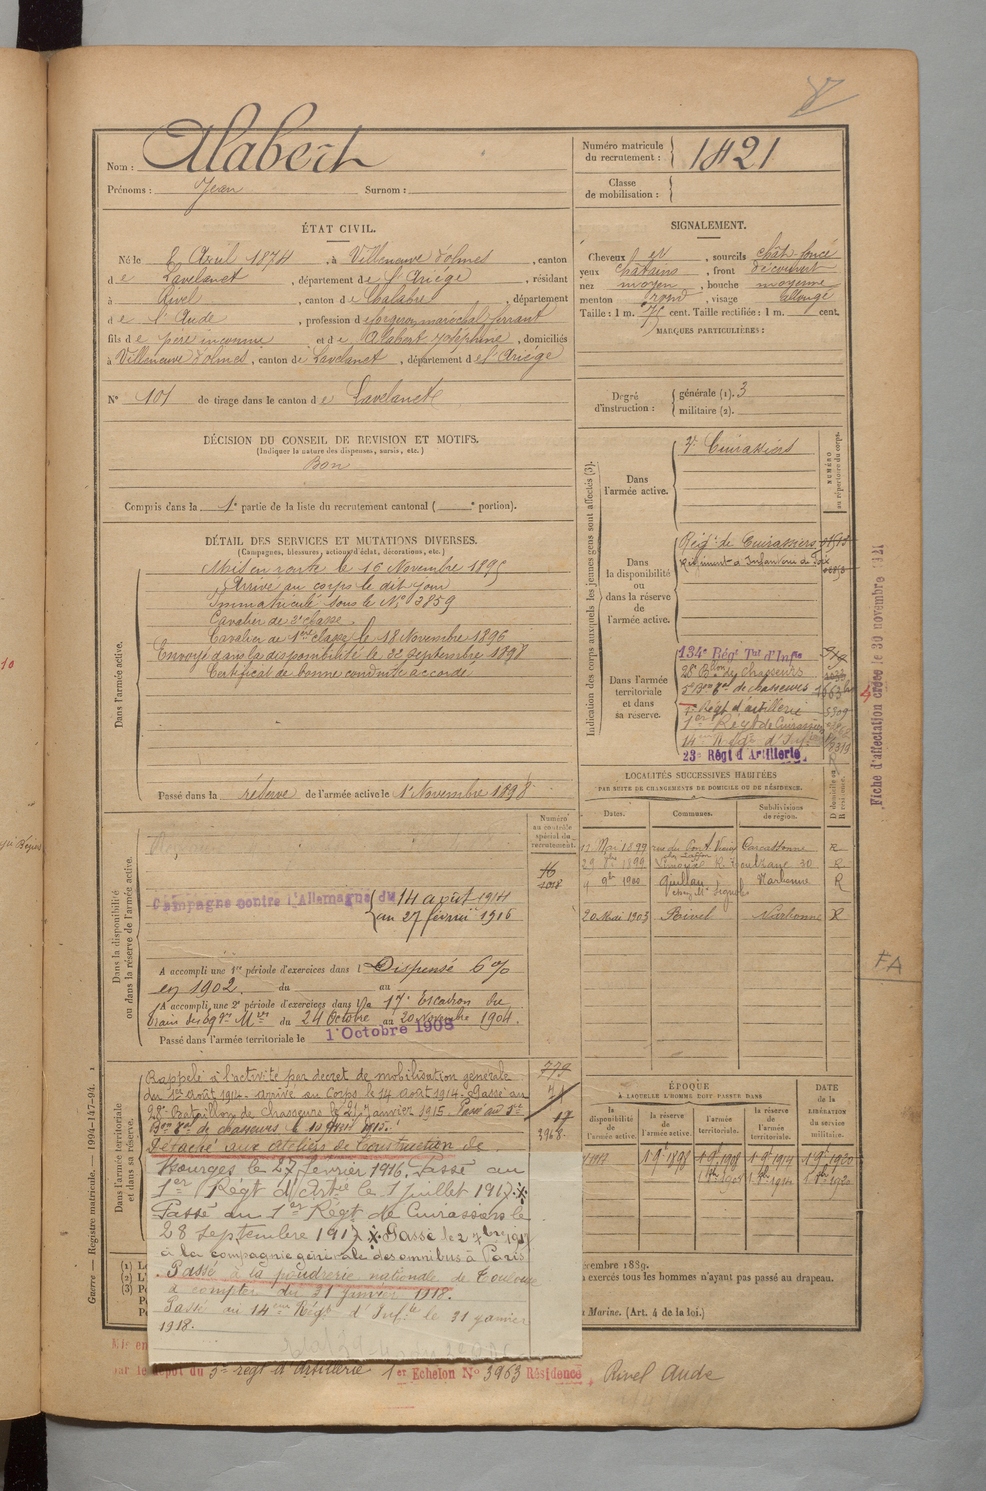 Nom : Alabert
Prénoms : Jean Surnom :
Numéro matricule du recrutement : 1421
Classe de mobilisation :
ÉTAT CIVIL.
Né le 2 Avril 1874, à Villeneuve d'olmes, canton
de Lavelanet, département de l'Ariége, résidant
à Rivel, canton de Chalabre, département
de l'Aude, profession de forgeron, maréchal ferrant
fils de père inconnu et de Alabert Joséphine, domiciliés
à Villeneuve d'olmes, canton de Lavelanet, département de l'Ariége
N° 101 de tirage dans le canton de Lavelanet
SIGNALEMENT.
Cheveux et, sourcils chât. foncé
yeux châtains, front découvert
nez moyen, bouche moyenne
menton rond, visage allongé
Taille : 1 m. 75 cent. Taille rectifiée : 1 m. cent.
MARQUES PARTICULIÈRES :
Degré d'instruction : générale (1). 3
militaire (2).
DÉCISION DU CONSEIL DE REVISION ET MOTIFS.
(Indiquer la nature des dispenses, sursis, etc.)
Bon
Compris dans la 1e partie de la liste du recrutement cantonal ( e portion).
DÉTAIL DES SERVICES ET MUTATIONS DIVERSES.
(Campagnes, blessures, actions d'éclat, décorations, etc.)
Dans l'armée active.
Mis en route le 16 Novembre 1895
Arrivé au corps le dit jour
Immatriculé sous le N° 3859
Cavalier de 2e classe.
Cavalier de 1ère classe le 18 Novembre 1896
Envoyé dans la disponibilité le 22 septembre 1898
Certificat de bonne conduite accordé
Passé dans la réserve de l'armée active le 1er Novembre 1898
Dans la disponibilité ou dans la réserve de l'armée active.
Numéro au contrôle spécial du recrutement.
Campagne contre l'Allemagne du 14 août 1914
au 27 février 1916
A accompli une 1re période d'exercices dans l Dispensé 6%
en 1902. du au
A accompli une 2e période d'exercices dans le 17e Escadron du
train des Eqges Mres du 24 Octobre au 20 Novembre 1904.
Passé dans l'armée territoriale le 1er Octobre 1908
Dans l'armée territoriale et dans sa réserve.
Rappelé à l'activité par décret de mobilisation générale
du 1er août 1914. arrivé au Corps le 14 août 1914. Passé au
28e Bataillon de Chasseurs le 21 Janvier 1915. Passé au 5e
Bon Tal de chasseurs le 10 1915.
Détaché aux ateliers de Construction de
Bourges le 27 février 1916. Passé au
1er Régt d'Artie le 1 juillet 1917.
Passé au 1er Régt de Cuirassiers le
28 septembre 1917 Passé le 27 bre 1917
à la compagnie générale des omnibus à Paris
Passé à la poudrerie nationale de Toulouse
à compter du 21 janvier 1918.
Passé au 14ème Régt d'Infie le 21 janvier
1918.
779
17
3968.
Indication des corps auxquels les jeunes gens sont affectés (3).
NUMÉRO au répertoire du corps.
Dans l'armée active.
Cuirassiers
Dans la disponibilité ou dans la réserve de l'armée active.
Régt de Cuirassiers
Régiment d'Infanterie de Foix
Dans l'armée territoriale et dans sa réserve.
134e Régt Tal d'Infie
28e Bon de chasseurs
5e Bon Tal de chasseurs
1er Régt d'artillerie
1er Régt de Cuirassiers
14e Régt d'Infie
23e Régt d'Artillerie
LOCALITÉS SUCCESSIVES HABITÉES
PAR SUITE DE CHANGEMENTS DE DOMICILE OU DE RÉSIDENCE.
Dates. Communes. Subdivisions de région. D domicile ou R résidence.
Mai 1899 rue du Pont Vieux Carcassonne R
9 9bre 1900 Quillan Narbonne R
20 Mai 1903 Rivel Narbonne R
ÉPOQUE
À LAQUELLE L'HOMME DOIT PASSER DANS
DATE DE LA LIBÉRATION DU service militaire.
la disponibilité de l'armée active. la réserve de l'armée active. l'armée territoriale. la réserve de l'armée territoriale.
1 9bre 1898 1 9bre 1908 1 9bre 1914 1 9bre 1920
écembre 1889.
a exercés tous les hommes n'ayant pas passé au drapeau.
Marine. (Art. 4 de la loi.)
Guerre — Registre matricule. — 1994-147-94.
Fiche d'affectation créée le 30 novembre
FA
dépôt du 3e régt d'Artillerie 1er Echelon N° 3963 Résidence, Rivel Aude